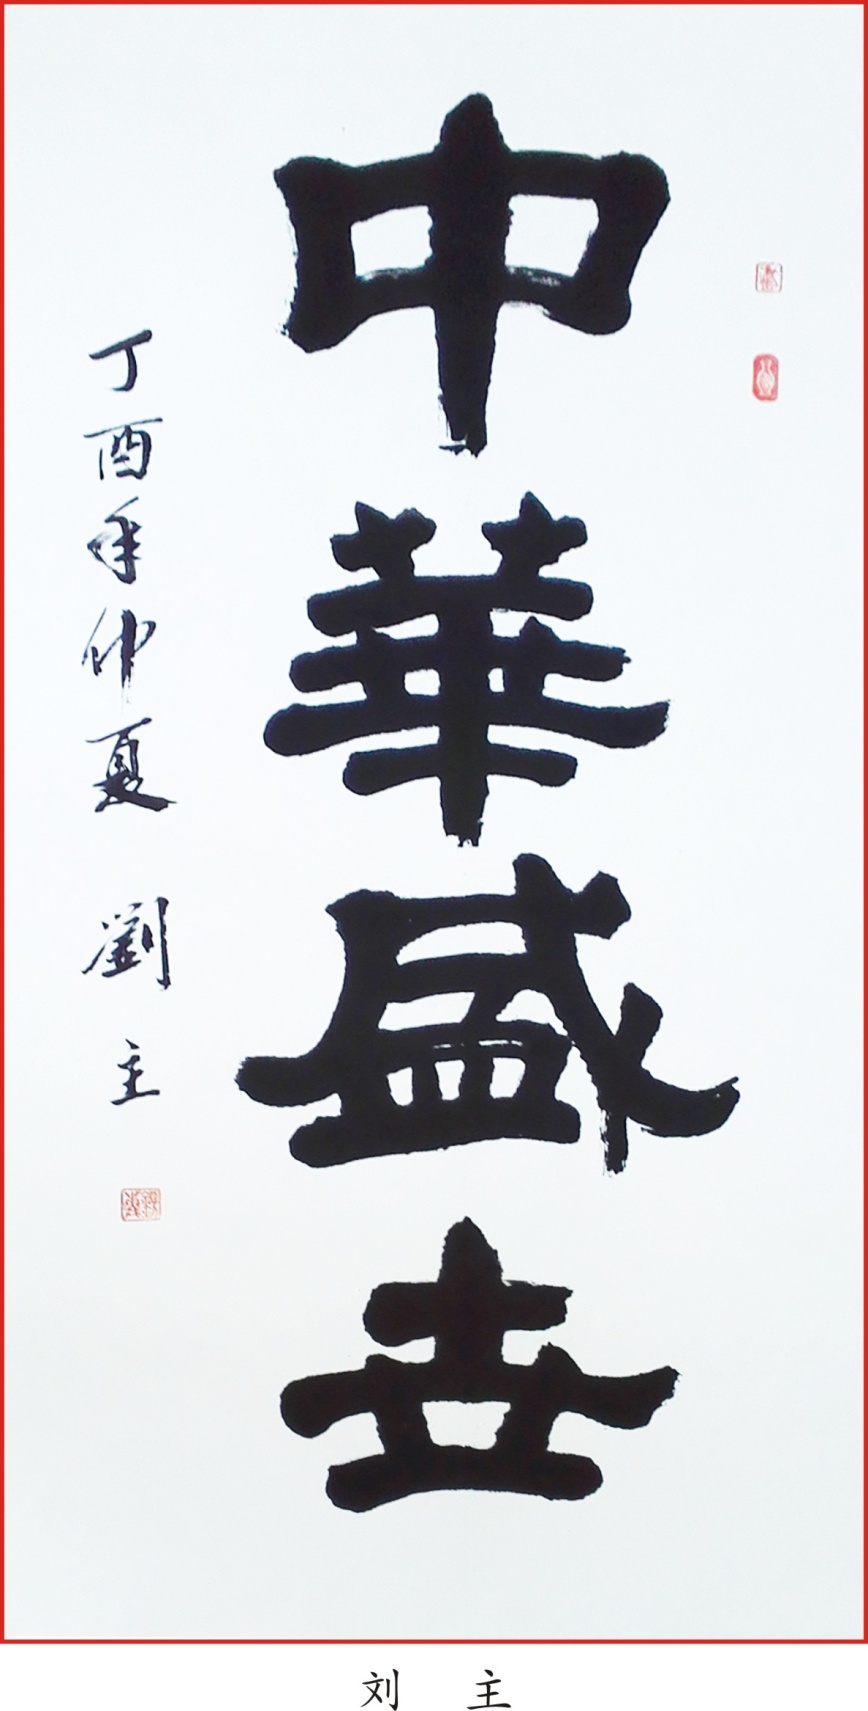 中華盛世
丁酉年仲夏 劉主
刘 主